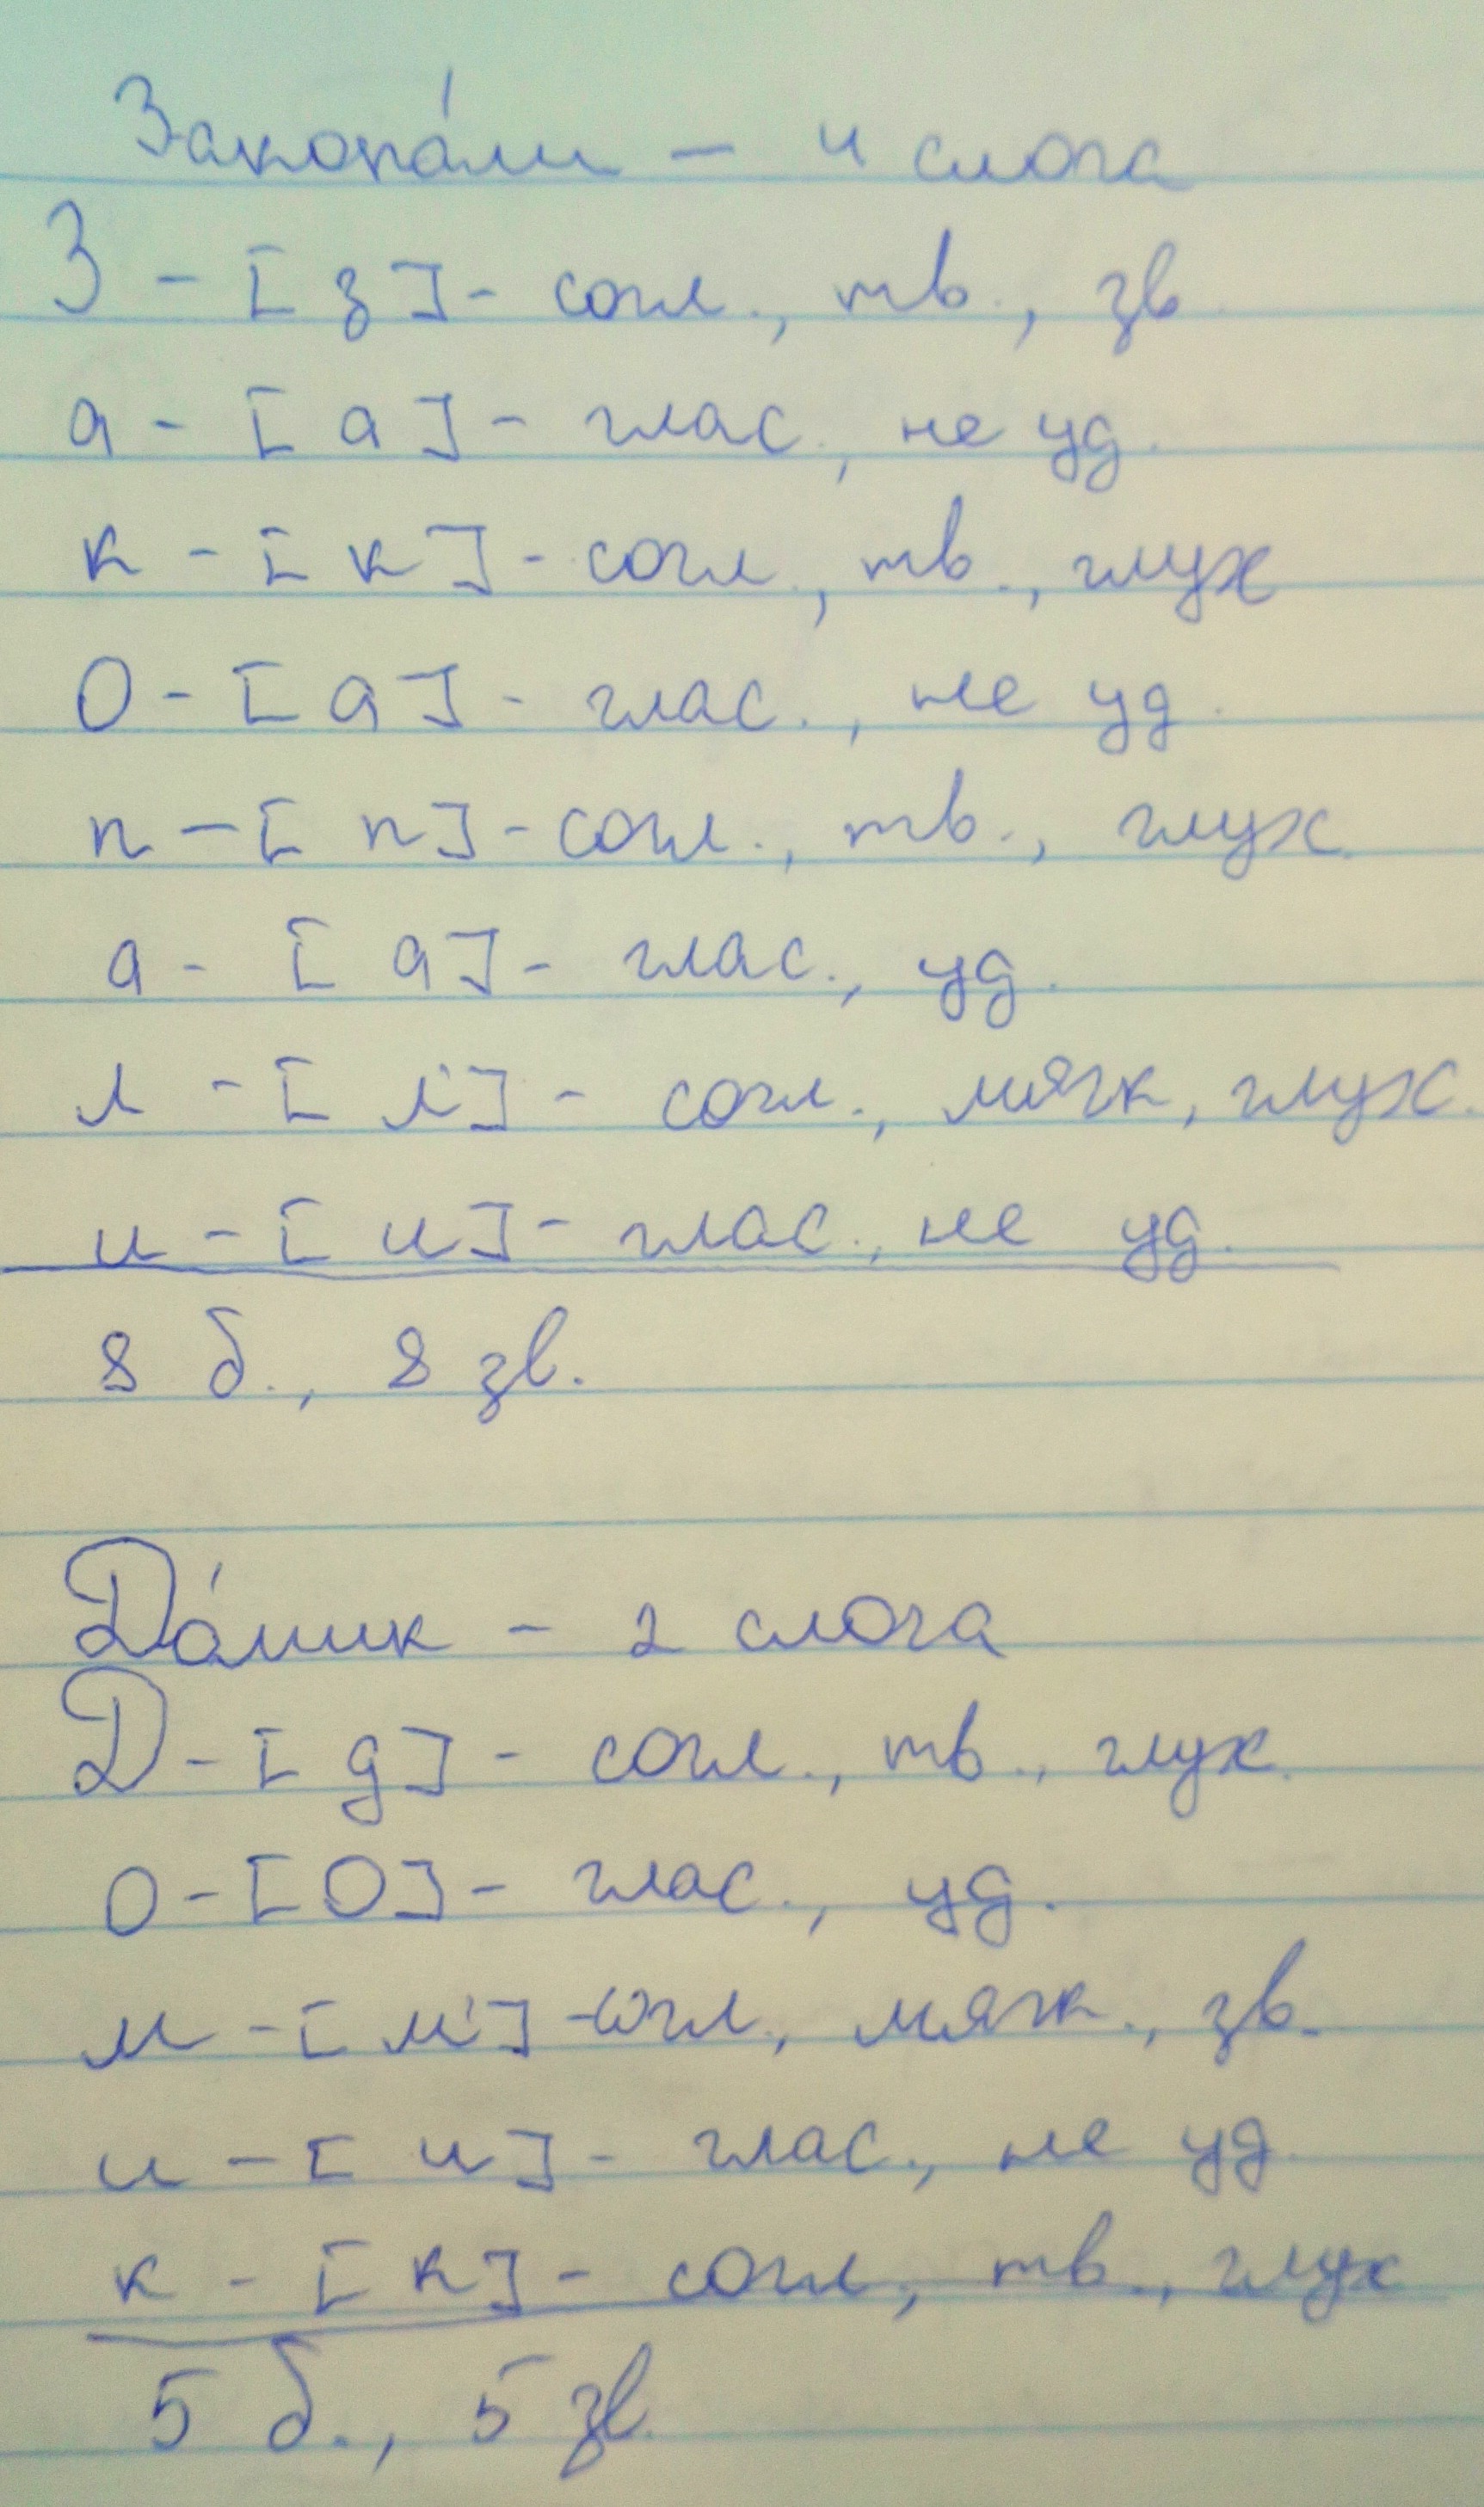 Закопа́ли — 4 слога
З - [з] - согл., тв., зв
а - [а] - глас., не уд.
к - [к] - согл., тв., глух
О - [а] - глас., не уд.
п - [п] - согл., тв., глух.
а - [а] - глас., уд.
л - [л'] - согл., мягк, глух.
и - [и] - глас., не уд.
8 б., 8 зв.
До́мик - 2 слога
Д - [д] - согл., тв., глух.
о - [О] - глас., уд.
м - [м'] - согл., мягк., зв.
и - [и] - глас., не уд.
к - [к] - согл., тв., глух
5 б., 5 зв.